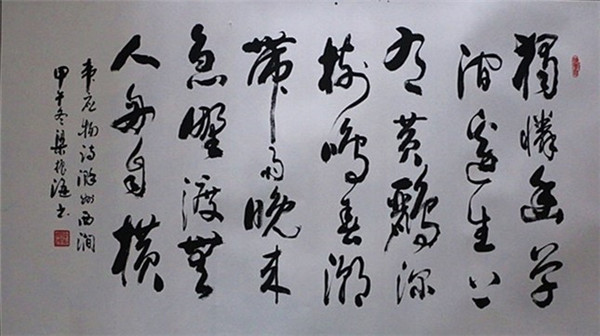 獨憐幽草
澗邊生上
有黃鸝深
樹鳴春潮
帶雨晚來
急野渡無
人舟自橫
韋应物詩滁州西澗
甲午冬梁振書